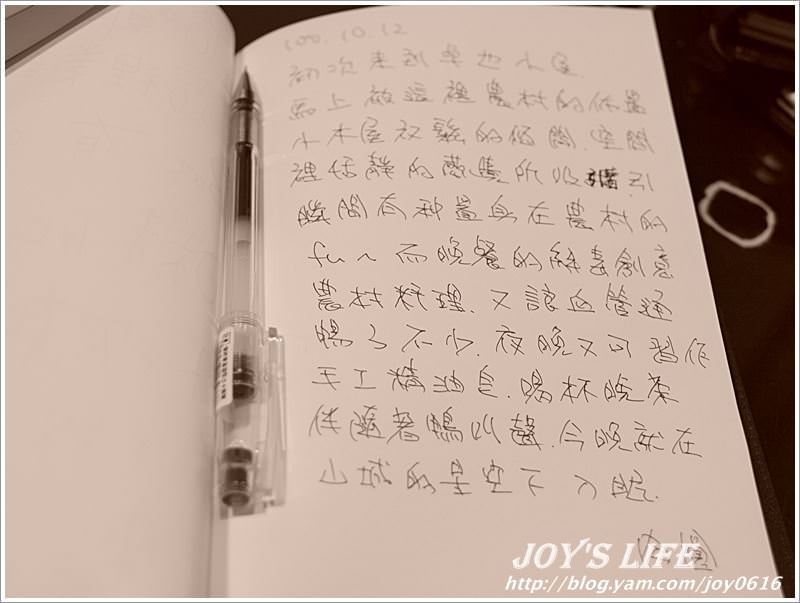 100.10.12
初次來到卓也小屋
馬上被這裡農村的佈置
小木屋衩鬆的佰闁.空間
裡恬靜的薗曉所吸引
瞬間有种置身在農村的
fu~而晚餐的絲毒創意
農村料理.又讓血管通
暢了不少.夜晚又可習作
手工精油皂.喝杯晚茶
伴隨著鴨叫聲.今晚就在
山城的星空下入眠.
JOY'S LIFE
http://blog.yam.com/joy0616